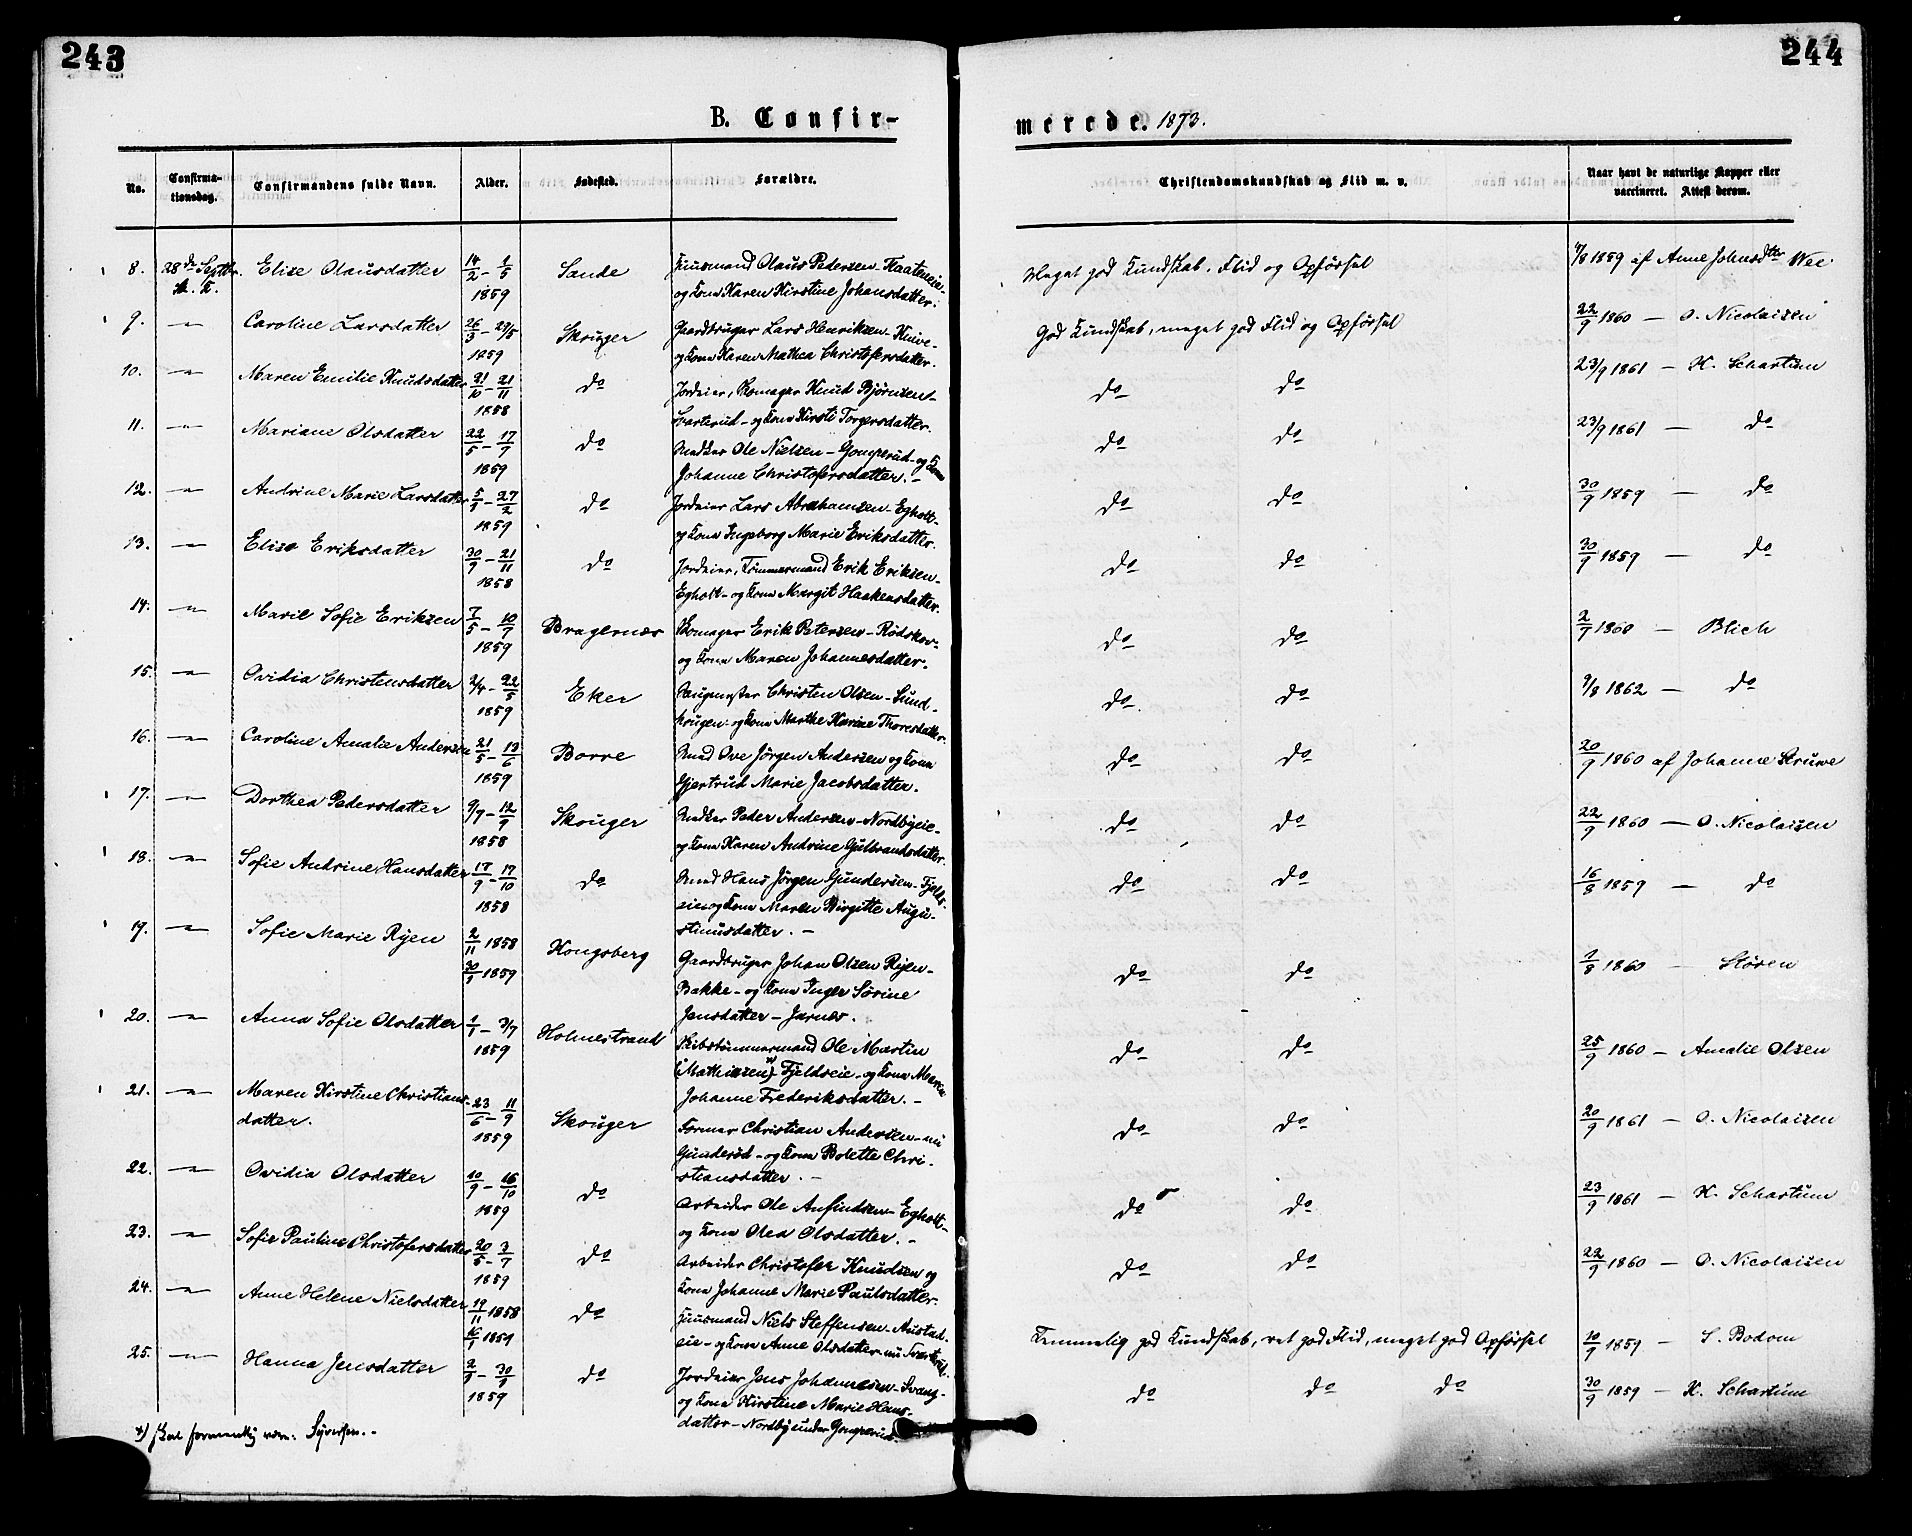 243
244
B. Confir-
merede. 1873.
No.
Confirma-
tionsdag.
Confirmandens fulde Navn.
Alder.
Fødested.
Forældre.
Christendomskundskab og Flid m. v.
Naar havt de naturlige Kopper eller
vaccineret. Attest derom.
8. 28de Septbr. Elise Olausdatter 14/2 - 1/5 1859 Sande
Huusmand Olaus Pedersen
og Kona Karen Kirstine Johansdatter.
Meget god Kundskab, Flid og Opførsel
1859 af Anne Johnsdtr Wee
9. -"- Caroline Larsdatter 26/3 - 29/5 1859 Skouger
Gaardbruger Lars Henriksen - Knive -
og Kona Karen Mathea Christofersdatter.
God Kundskab, meget god Flid og Opførsel
22/9 1860 - O. Nicolaisen
10. -"- Maren Emilie Knudsdatter 21/10 - 21/11 1858 do
Jordeier, Skomager Knud Bjørnsen -
Svarterud - og Kona Kirsti Torgersdatter.
do do
23/9 1861 - K. Schartum
11. -"- Mariane Olsdatter 22/5 - 17/7 1859 do
Ole Nielsen - Gomperud - og Kona
Johanne Christofersdatter. -
do do
23/9 1861 - do
12. -"- Andrine Marie Larsdatter 5/1 - 27/2 1859 do
Jordeier Lars Abrahamsen - Egholt -
og Kona Ingeborg Marie Eriksdatter.
do do
30/9 1859 - do
13. -"- Elise Eriksdatter 30/9 - 21/11 1858 do
Jordeier, Tømmermand Erik Eriksen -
Egholt - og Kona Margit Haakensdatter.
do do
30/9 1859 - do
14. -"- Marie Sofie Eriksen 7/5 - 10/7 1859 Bragernæs
Skomager Erik Petersen - Rødskov -
og Kona Maren Johannesdatter.
do do
2/7 1860 - Blich
15. -"- Ovidia Christensdatter 2/4 - 22/5 1859 Eker
Christen Olsen - Sund-
haugen - og Kona Marthe Karine Thoresdatter.
do do
9/8 1862 - do
16. -"- Caroline Amalie Andersen 21/5 - 13/6 1859 Borre
Ove Jørgen Andersen og Kona
Gjertrud Marie Jacobsdatter.
do do
20/9 1860 af Johanne Struwe
17. -"- Dorthea Pedersdatter 9/7 - 12/9 1858 Skouger
Peder Andersen - Nordbyeie -
og Kona Karen Andrine Gulbrandsdatter.
do do
22/9 1860 - O. Nicolaisen
18. -"- Sofie Andrine Hansdatter 17/9 - 17/10 1858 do
Hans Jørgen Gundersen - Fjelds-
eie og Kona Maren Birgitte Augu-
stinusdatter. -
do do
16/8 1859 - do
19. -"- Sofie Marie Ryen 2/11 1858 30/1 1859 Kongsberg
Gaardbruger Johan Olsen Ryen -
Bakke - og Kona Inger Sørine
Jensdatter - Jarnes.
do do
1/8 1860 - Støren
20. -"- Anna Sofie Olsdatter 1/1 - 3/7 1859 Holmestrand
Skibstømmermand Ole Martin
(Mathiesen*) Fjeldseie - og Kona Maren
Johanne Frederiksdatter. -
do do
25/9 1860 - Amalie Olsen
21. -"- Maren Kirstine Christians-
datter. 23/6 - 11/9 1859 Skouger
Former Christian Andersen - nu
Gunderud - og Kona Bolette Chri-
stiansdatter. -
do do
20/9 1861 - O. Nicolaisen
22. -"- Ovidia Olsdatter 10/9 - 16/10 1859 do
Arbeider Ole Anfindsen - Egholt -
og Kona Olea Olsdatter. -
do do
23/9 1861 - K. Schartum
23. -"- Sofie Pauline Christofersdatter 20/5 - 3/7 1859 do
Arbeider Christofer Knudsen og
Kona Johanne Marie Paulsdatter.
do do
22/9 1860 - O. Nicolaisen
24. -"- Anne Helene Nielsdatter 19/11 1858 16/1 1859 do
Huusmand Niels Steffensen - Austad-
eie - og Kona Anne Olsdatter - nu Svarterud.
Temmelig god Kundskab, ret god Flid, meget god Opførsel
10/9 1859 - S. Bodom
25. -"- Hanna Jensdatter 2/1 - 30/1 1859 do
Jordeier Jens Johannesen - Svang -
og Kona Kirstine Marie Hans-
datter - Nordby under Gomperud.
do do do
30/9 1859 - K. Schartum
*) skal formentlig være: Syversen. -